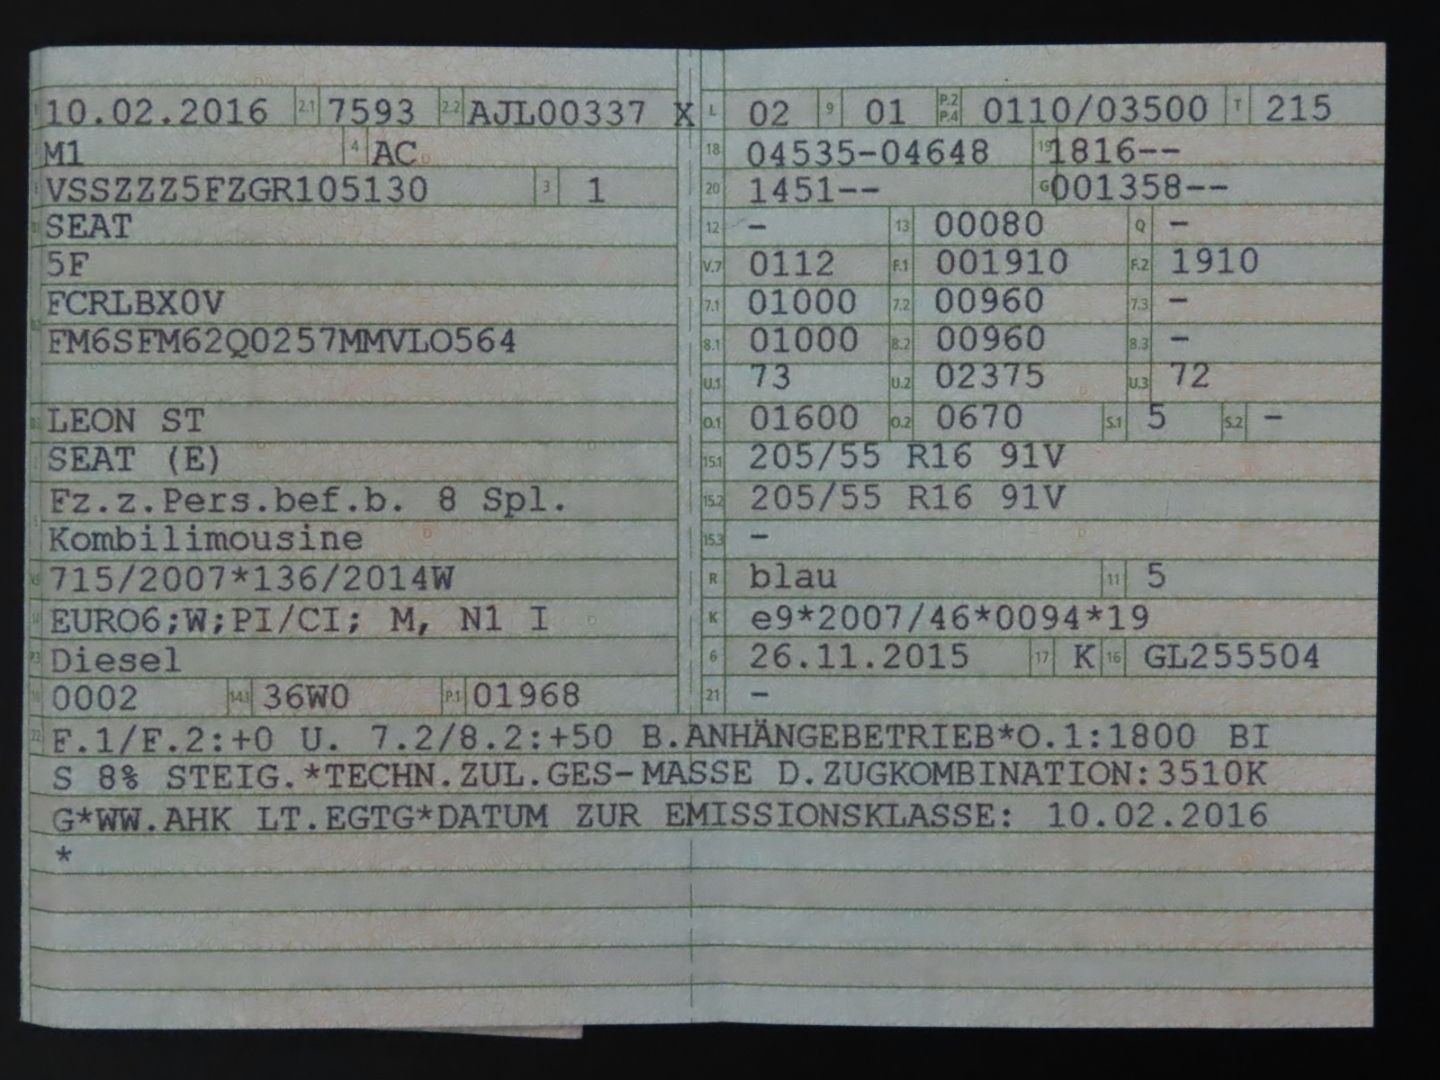 10.02.2016 2.1 7593 2.2 AJL00337 X
M1 4 AC
VSSZZZ5FZGR105130 3 1
SEAT
5F
FCRLBX0V
FM6SFM62Q0257MMVLO564
LEON ST
SEAT (E)
Fz.z.Pers.bef.b. 8 Spl.
Kombilimousine
715/2007*136/2014W
EURO6;W;PI/CI; M, N1 I
P.3 Diesel
10 0002 14.1 36W0 P.1 01968
L 02 9 01 P.2 P.4 0110/03500 T 215
18 04535-04648 19 1816--
20 1451-- G 001358--
12 - 13 00080 Q -
V.7 0112 F.1 001910 F.2 1910
7.1 01000 7.2 00960 7.3 -
8.1 01000 8.2 00960 8.3 -
U.1 73 U.2 02375 U.3 72
O.1 01600 O.2 0670 S.1 5 S.2 -
15.1 205/55 R16 91V
15.2 205/55 R16 91V
15.3 -
R blau 11 5
K e9*2007/46*0094*19
6 26.11.2015 17 K 16 GL255504
21 -
22 F.1/F.2:+0 U. 7.2/8.2:+50 B.ANHÄNGEBETRIEB*O.1:1800 BI
S 8% STEIG.*TECHN.ZUL.GES-MASSE D.ZUGKOMBINATION:3510K
G*WW.AHK LT.EGTG*DATUM ZUR EMISSIONSKLASSE: 10.02.2016
*